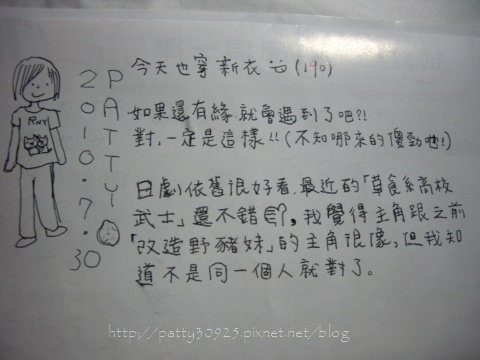 今天也穿新衣 (190)
如果還有緣,就會遇到了吧?!
對,一定是這樣!!(不知哪來的傻勁啦!)
日劇依舊很好看,最近的「草食系高校
武士」還不錯,我覺得主角跟之前
「改造野豬妹」的主角很像,但我知
道不是同一個人就對了。
PATTY
2010.7.30
http://patty30925.pixnet.net/blog